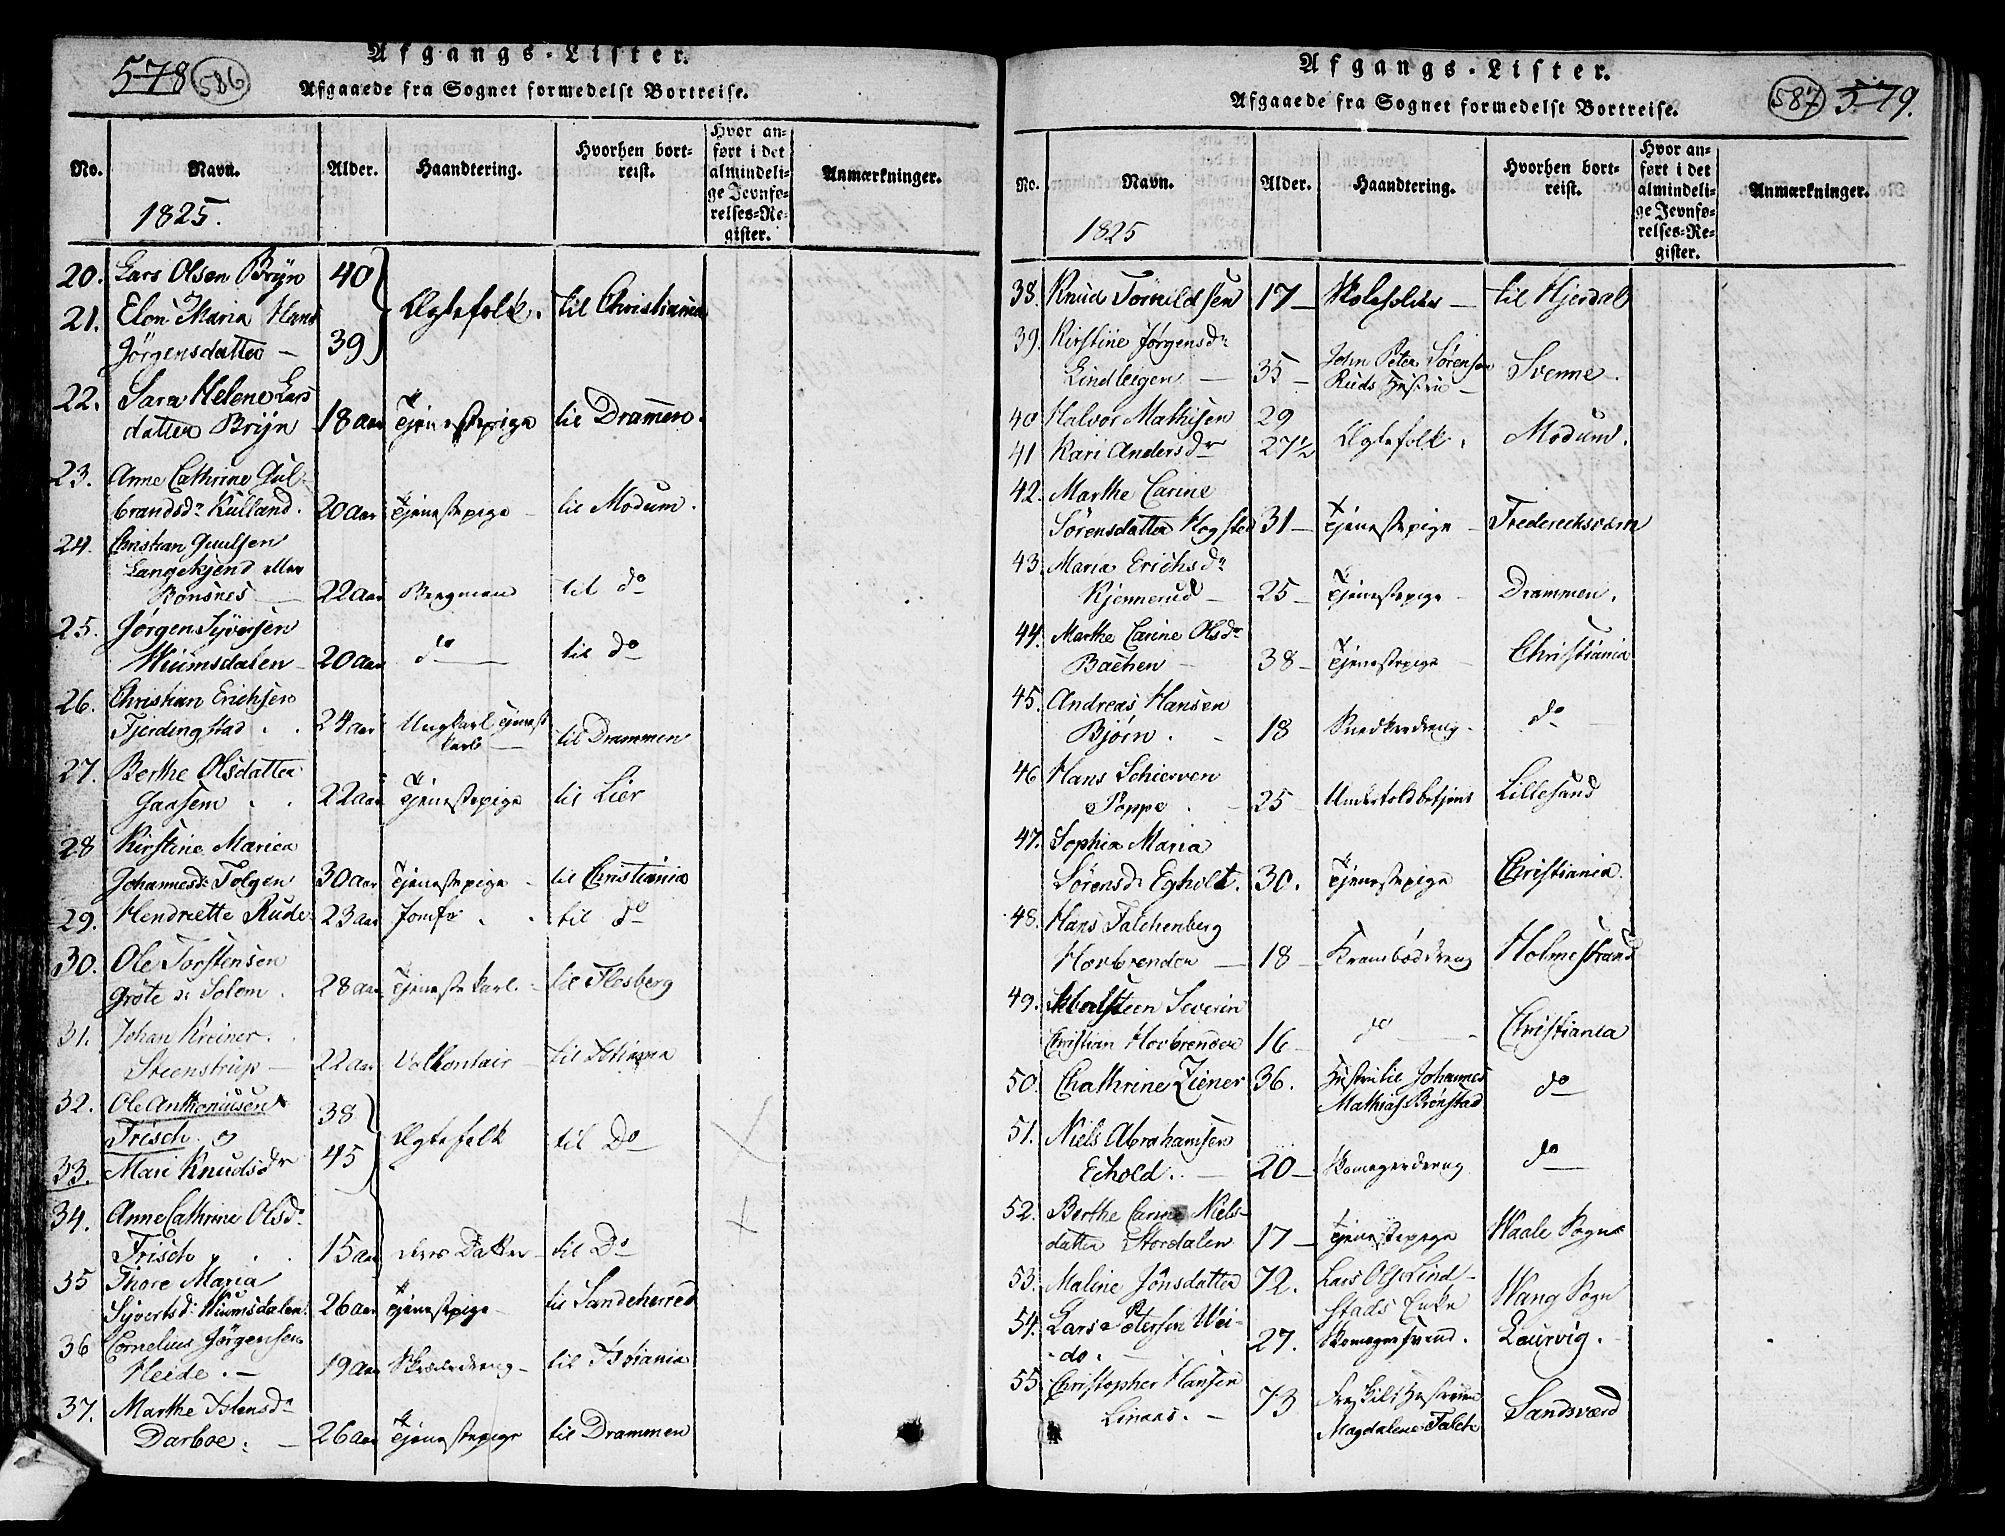 578 586
Afgangs-Lister.
Afgaaede fra Sognet formedelst Bortreise.
No. Navn. Alder. Haandtering. Hvorhen bort-reist. Hvor an-ført i det almindeli-ge Jevnfø-relses-Re-gister. Anmærkninger.
1825.
20. Lars Olsen Brÿn 40
21. Elon Maria Hans Ægtefolk. til Christiania
Jörgensdatter – 39
22. Sara Helene Lars
datter Brÿn 18 aar Tjenestepige til Drammen.
23. Anne Cathrine Gul-
brandsdr Kulland. 20 aar Tjenestepige – til Modum.
24. Christian Paulsen
Langekjend eller
Ronsnes – 22 aar Bergmand til do
25. Jørgen Syversen
Wiumsdalen – 20 aar do – til do
26. Christian Erichsen
Fjerdingstad . . 24 aar Ungkarl Tjenest
karl – til Drammen
27. Berthe Olsdatter
Gaasem . . 22 aar Tjenestepige til Lier
28 Kirstine Maria
Johannesdr Tolgen 30 aar Tjenestepige – til Christiania
29. Hendriette Rude 23 aar Jomfr . . til do
30. Ole Torstensen
Grôte Solem . 28 aar Tjenestekarl. – til Flesberg
31. Johan Kreiner . .
Steenstrup – 22 aar til Xstiania
32. Ole Anthoniusen 38
Frisch. og Ægtefolk til Do –
33. Mari Knudsdr 45
34. Anne Cathrine Olsdr
Frisch . . 15 aar deres Datter – til Do
35 Thore Maria
Syvertsdr Wiumsdalen 26 aar Tjenestepige – til Sandeherred
36 Cornelius Jørgensen
Heide . – 19 aar – til Xstiania
37. Marthe
Darboe. – 26 aar Tjenestepige til Drammen
587 579.
Afgangs-Lister.
Afgaaede fra Sognet formedelst Bortreise.
No. Navn. Alder. Haandtering. Hvorhen bort-reist. Hvor an-ført i det almindeli-ge Jevnfø-relses-Re-gister. Anmærkninger.
1825
38. Knud 17 – Skoleholder – til Hjerdal
39. Kirstine Jørgensdr
Lindteigen – 35 – John Peter Sörensen
Ruds Hustru – Svenne .
40 Halvor Mathisen 29
41 Kari Andersdr 27½ Ægtefolk . Modum.
42. Marthe Carine
Sörensdatter Hogstad 31 – Tjenestepige – Frederichsværn
43. Maria Erichsdr
Kjennerud – 25 – Tjenestepige – Drammen.
44. Marthe Carine Olsdr
Bachen – 38 – Tjenestepige – Christiania
45. Andreas Hansen
Bjørn . – 18 Snedkerdreng – do –
46 Hans Schierven
Poppe . – 25 – Undertoldbetjent Lillesand
47. Sophia Maria
Sørensdr Egholt. 30. Tjenestepige Christiania.
48. Hans Falchenberg
Hovbrender – 18 – Kramboddreng Holmestrand
49. Severin
Christian Hovbrender 16 – do – Christiania
50. Chathrine Ziener 36. Hustru til Johannes
Mathias Brönstad do –
51. Niels Abrahamsen
Echold. – 20 – Skomagerdreng do –
52. Berthe Carine Niels-
datter Stordalen 17 – Tjenestepige Waale Sogn
53. Maline Jönsdatter 72. Lars Ols Lind-
stads Enke Wang Sogn
54. Lars Petersen Wei-
do. – 27. Skomagersvend . Laurvig. –
55. Christopher Hansen
Linaas. – 73 Fraskilt Hustruen
Magdalene Falch Sandsværd